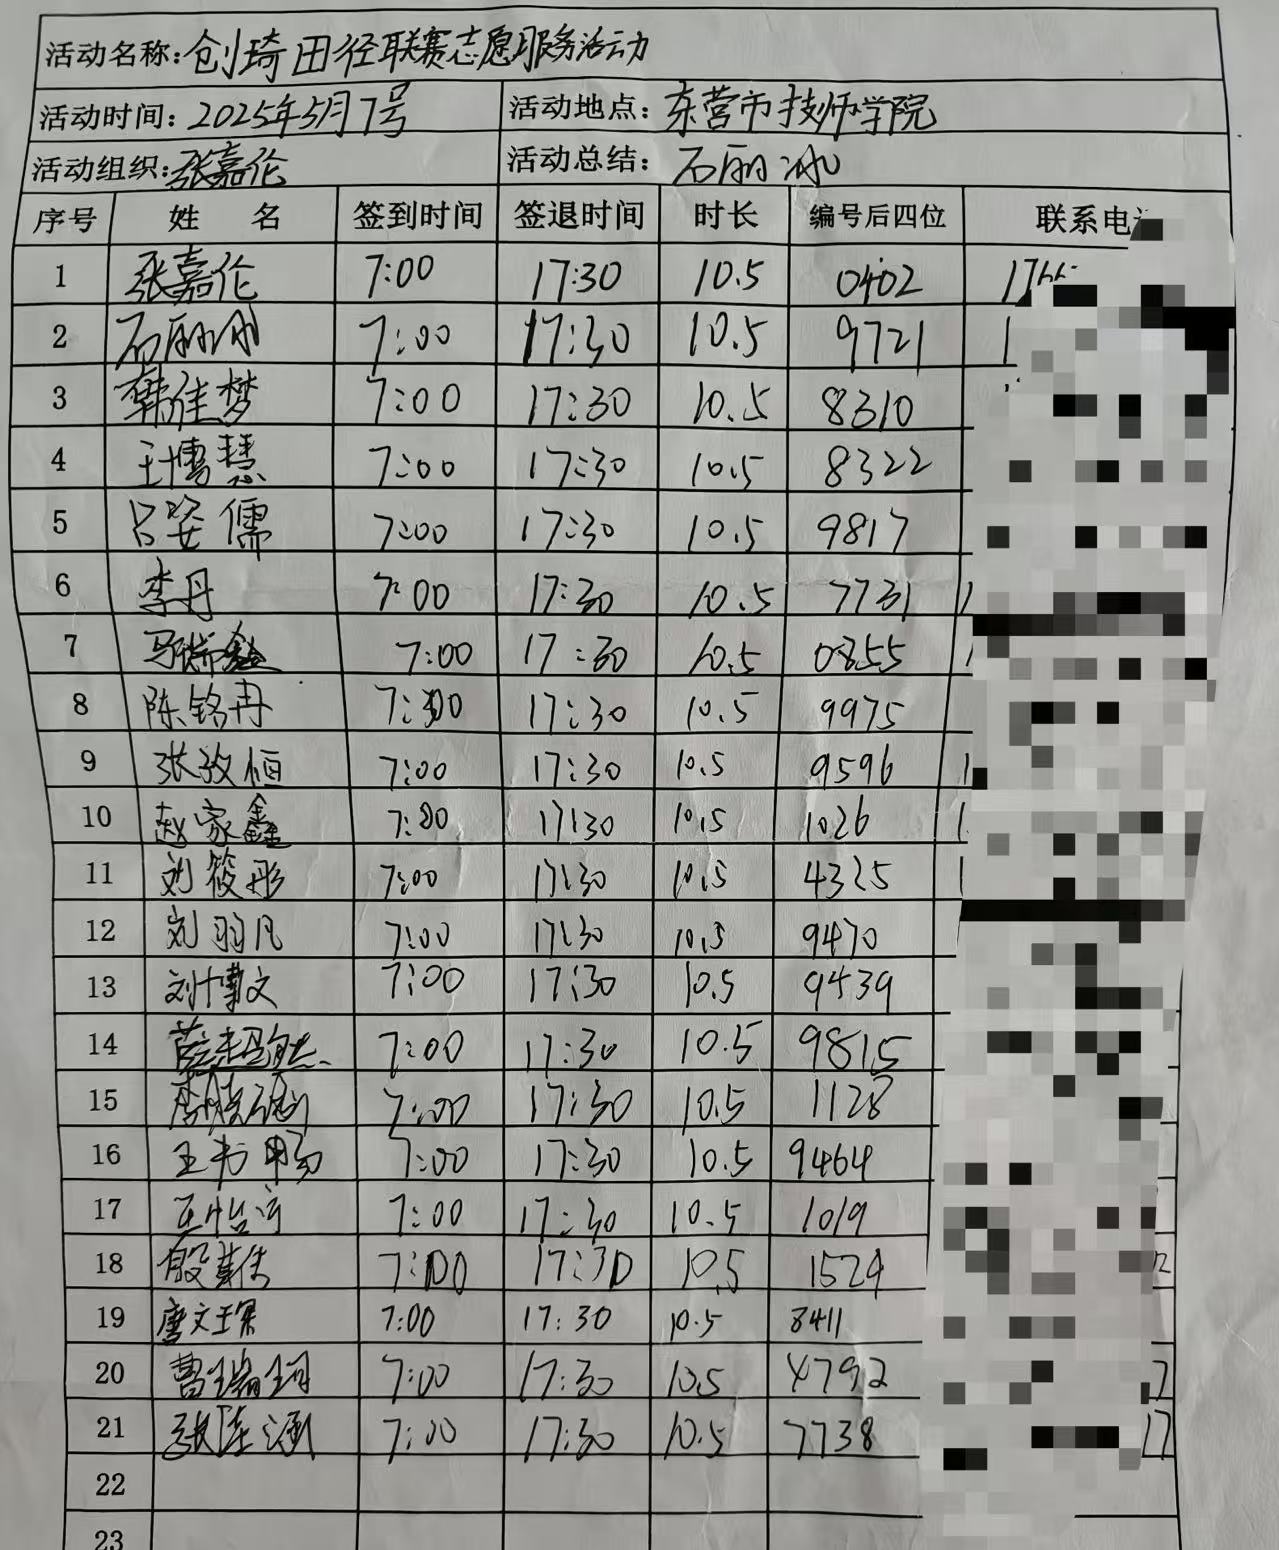 活动名称:创琦田径联赛志愿服务活动
活动时间:2025年5月7号 活动地点:东营市技师学院
活动组织:张嘉伦 活动总结:石丽冰
序号 姓 名 签到时间 签退时间 时长 编号后四位 联系电
1 张嘉伦 7:00 17:30 10.5 0402 17
2 石丽冰 7:00 17:30 10.5 9721 1
3 韩佳梦 7:00 17:30 10.5 8310
4 王博慧 7:00 17:30 10.5 8322
5 吕姿儒 7:00 17:30 10.5 9817
6 李丹 7:00 17:30 10.5 7731 1
7 马瑞鑫 7:00 17:30 10.5 0855 1
8 陈铭冉 7:00 17:30 10.5 9975
9 张孜恒 7:00 17:30 10.5 9596 1
10 赵家鑫 7:00 17:30 10.5 1026 1
11 刘筱彤 7:00 17:30 10.5 4325 1
12 刘羽凡 7:00 17:30 10.5 9470
13 刘博文 7:00 17:30 10.5 9439
14 7:00 17:30 10.5 9815
15 7:00 17:30 10.5 1128
16 王书畅 7:00 17:30 10.5 9464
17 王怡 7:00 17:30 10.5 1019
18 殷 7:00 17:30 10.5 1524
19 唐文 7:00 17:30 10.5 8411
20 曹瑞珂 7:00 17:30 10.5 4792 7
21 张 涵 7:00 17:30 10.5 7738 17
22
23